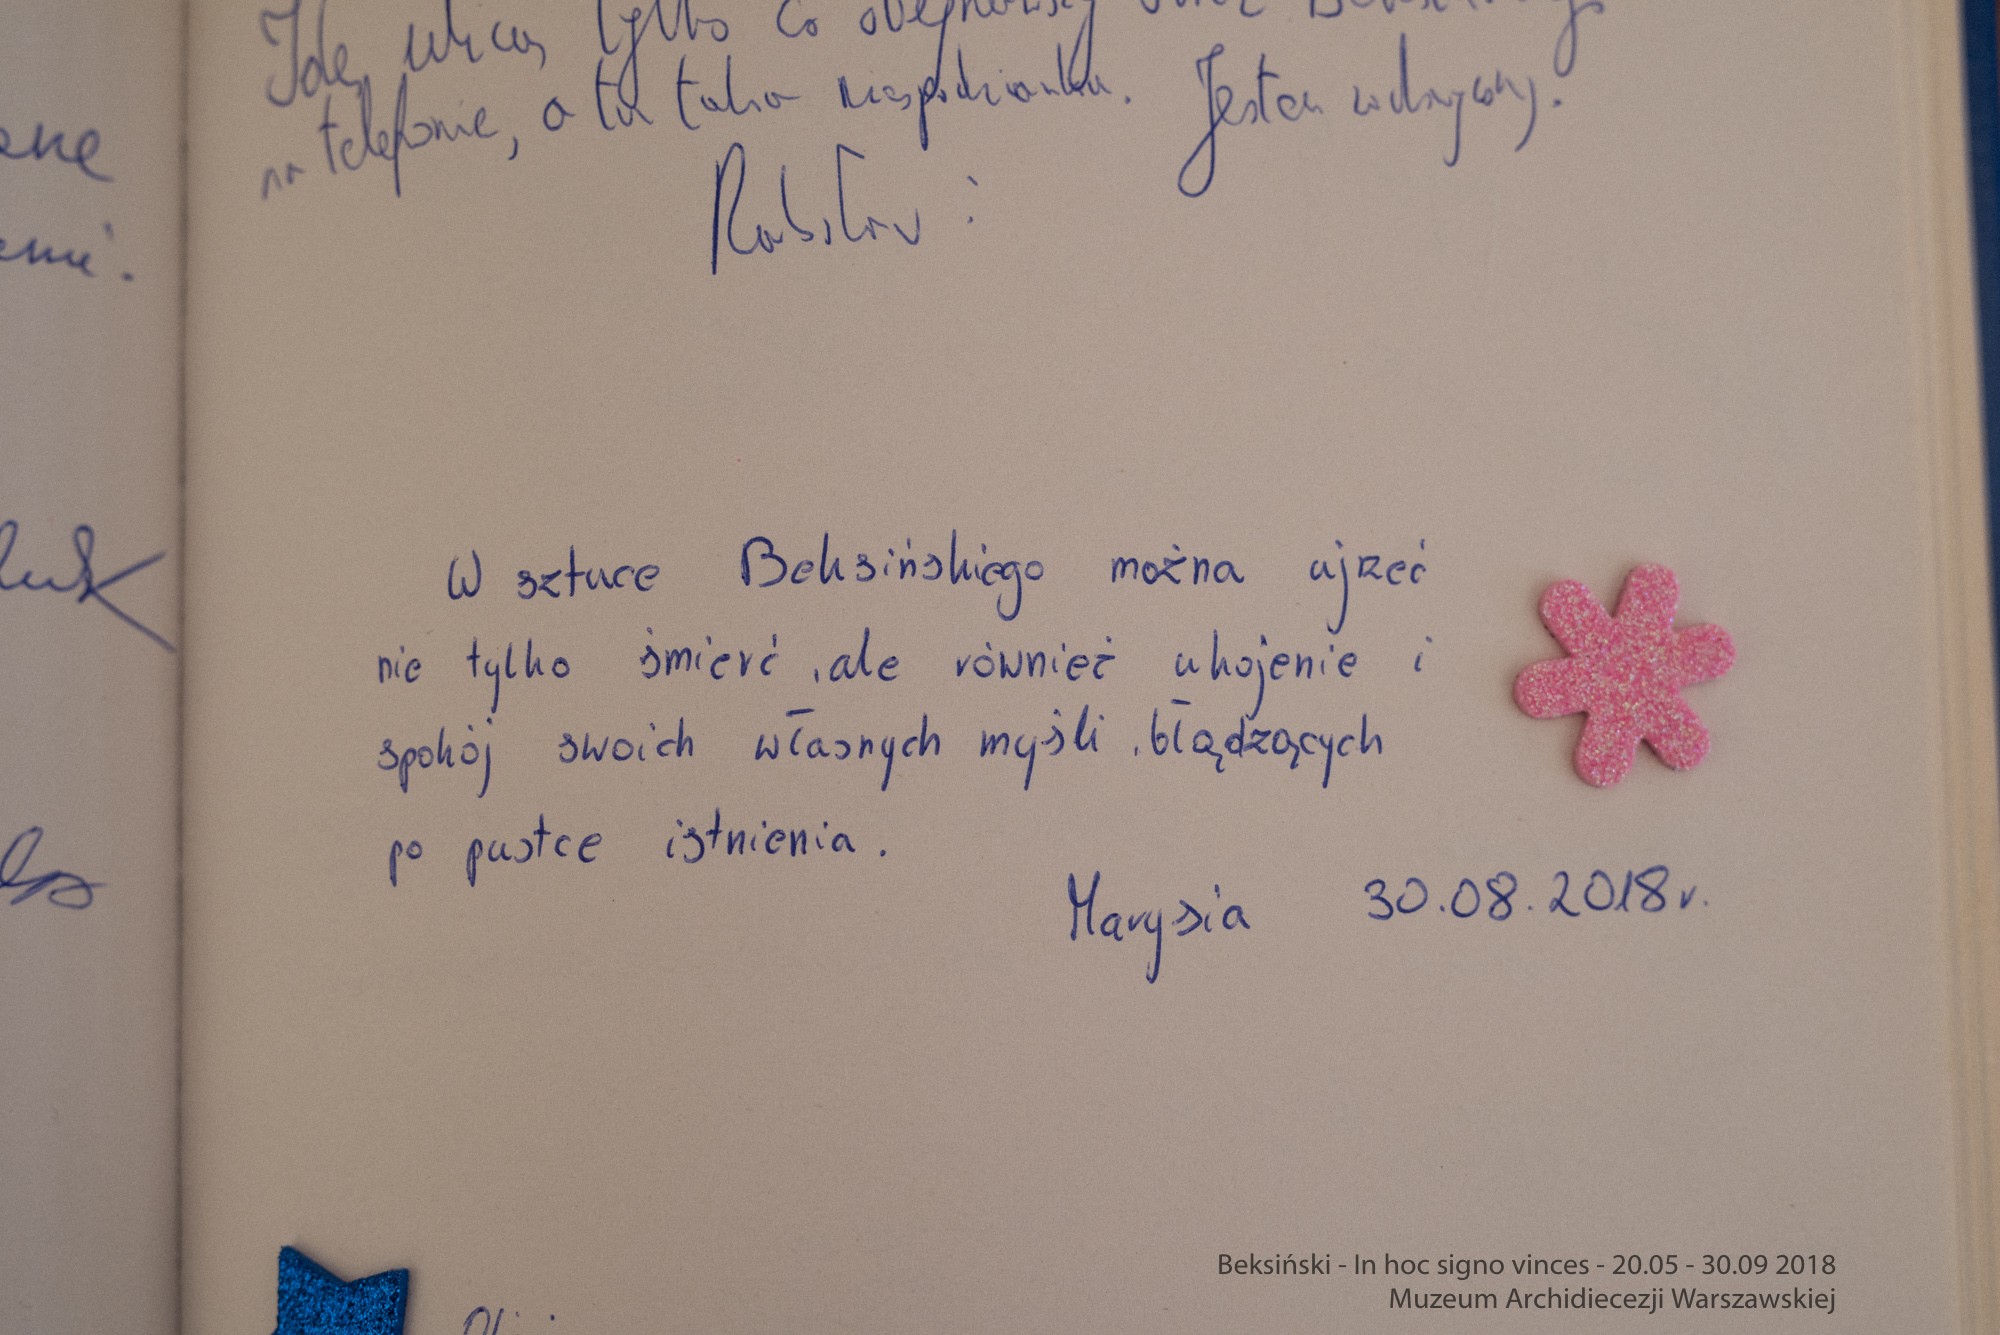 Idę ulicą tylko co
na telefonie, a tu taka niespodzianka. Jestem
W sztuce Beksińskiego można ujrzeć
nie tylko śmierć, ale również ukojenie i
spokój swoich własnych myśli, błądzących
po pustce istnienia.
Marysia 30.08.2018r.
Beksiński - In hoc signo vinces - 20.05 - 30.09 2018
Muzeum Archidiecezji Warszawskiej